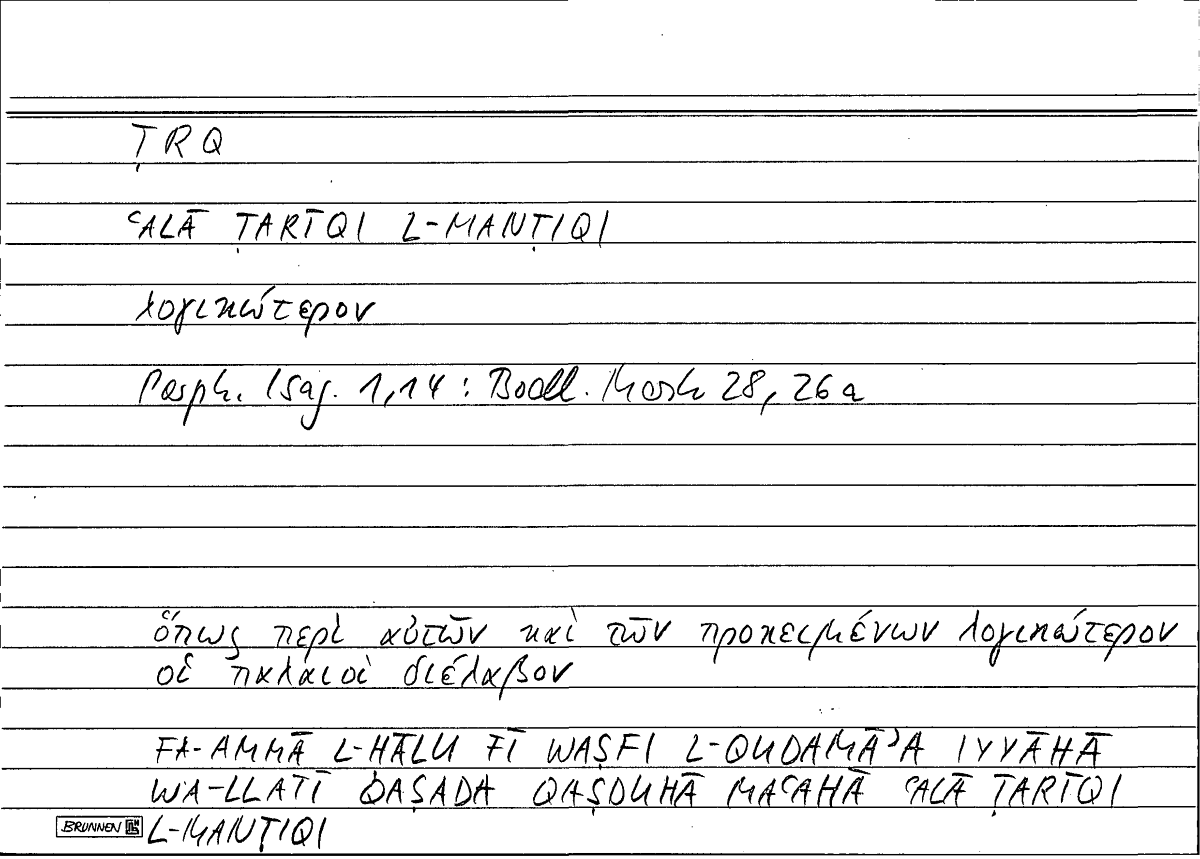 ṬRQ
ʿALĀ ṬARĪQI L-MANṬIQI
λογικώτερον
Porph. Isag. 1,14 : Bodl. Marsh 28, 26a
ὅπως περὶ αὐτῶν καὶ τῶν προκειμένων λογικώτερον
οἱ παλαιοὶ διέλαβον
FA-AMMĀ L-ḤĀLU FĪ WAṢFI L-QUDAMĀʾA IYYĀHĀ
WA-LLATĪ QAṢADA QAṢDUHĀ MAʿAHĀ ʿALĀ ṬARĪQI
BRUNNEN L-MANṬIQI